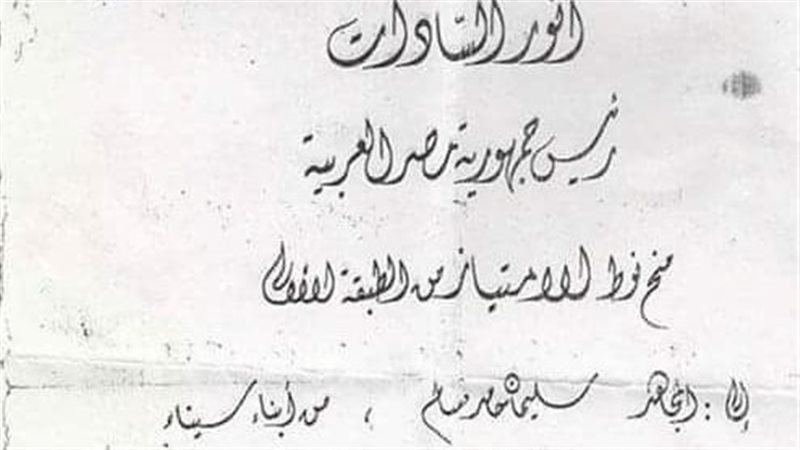 أنور السادات
رئيس جمهورية مصر العربية
منح نوط الامتياز من الطبقة الأولى
إلى : المجاهد سليمان سالم ، من أبناء سيناء